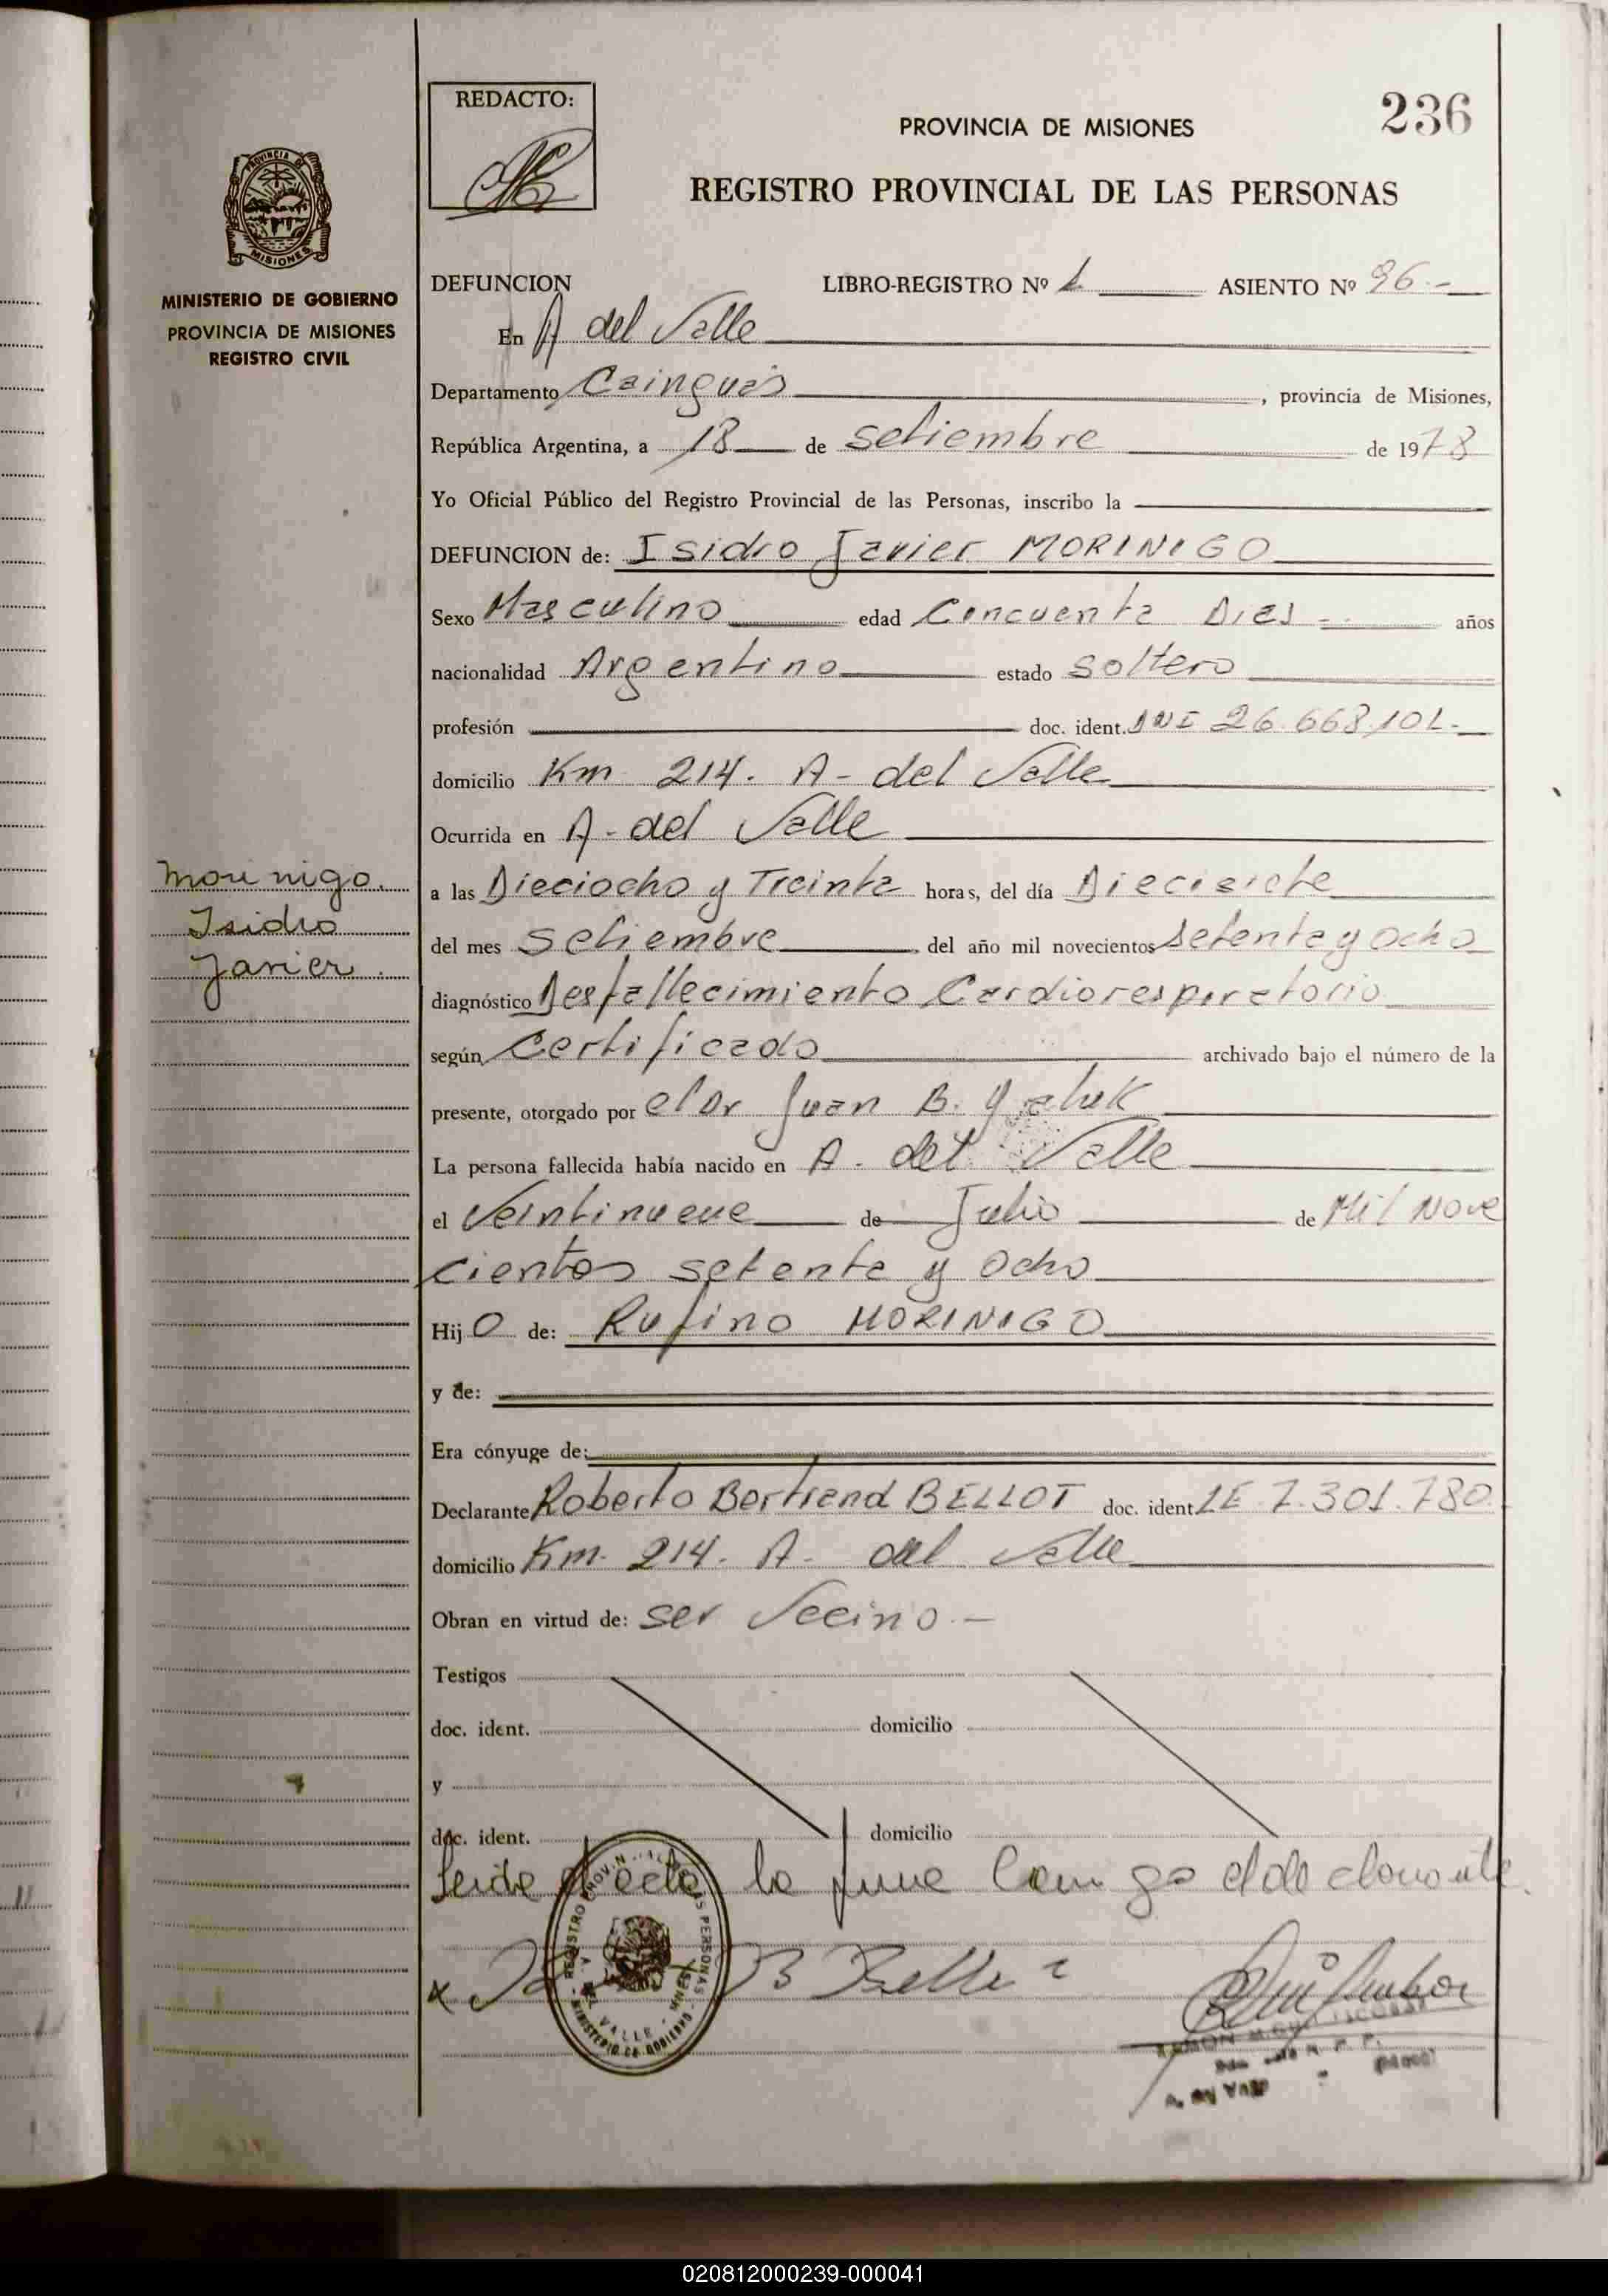 236
REDACTO:
PROVINCIA DE MISIONES
REGISTRO PROVINCIAL DE LAS PERSONAS
PROVINCIA DE
MISIONES
MINISTERIO DE GOBIERNO
PROVINCIA DE MISIONES
REGISTRO CIVIL
DEFUNCION LIBRO-REGISTRO Nº 1 ASIENTO Nº 96.-
En A del Valle
Departamento Cainguas, provincia de Misiones,
República Argentina, a 18 de Setiembre de 1978
Yo Oficial Público del Registro Provincial de las Personas, inscribo la
DEFUNCION de: Isidro Javier MORINIGO
Sexo Masculino edad Cincuenta Dias años
nacionalidad Argentino estado soltero
profesión doc. ident. DNI 26.668.101-
domicilio Km 214. A- del Valle
Ocurrida en A- del Valle
Morinigo.
Isidro
Javier.
a las Dieciocho y Treinta horas, del día Diecisiete
del mes Setiembre del año mil novecientos setenta y ocho
diagnóstico Desfallecimiento Cardiorespiratorio
según Certificado archivado bajo el número de la
presente, otorgado por el Dr Juan B.
La persona fallecida había nacido en A. del Valle
el Veintinueve de Julio de Mil Nove
cientos setenta y ocho
Hijo de: Rufino MORINIGO
y de:
Era cónyuge de:
Declarante Roberto Bertrand BELLOT doc. ident. LE 7.301.780
domicilio Km. 214. A- del Valle
Obran en virtud de: ser Vecino.-
Testigos
doc. ident. domicilio
y
doc. ident. domicilio
Leida el acta la firma conmigo el declarante.
REGISTRO PROVINCIAL DE LAS PERSONAS
A. DEL VALLE - MNES.
MINISTERIO DE GOBIERNO
020812000239-000041